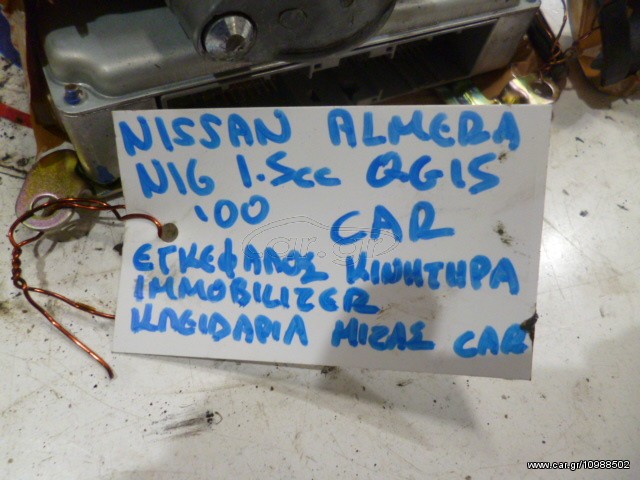 NISSAN ALMERA
N16 1.5cc QG15
'00 CAR
car.gr
ΕΓΚΕΦΑΛΟΣ ΚΙΝΗΤΗΡΑ
IMMOBILIZER
ΚΛΕΙΔΑΡΙΑ ΜΙΖΑΣ CAR
www.car.gr/10988502